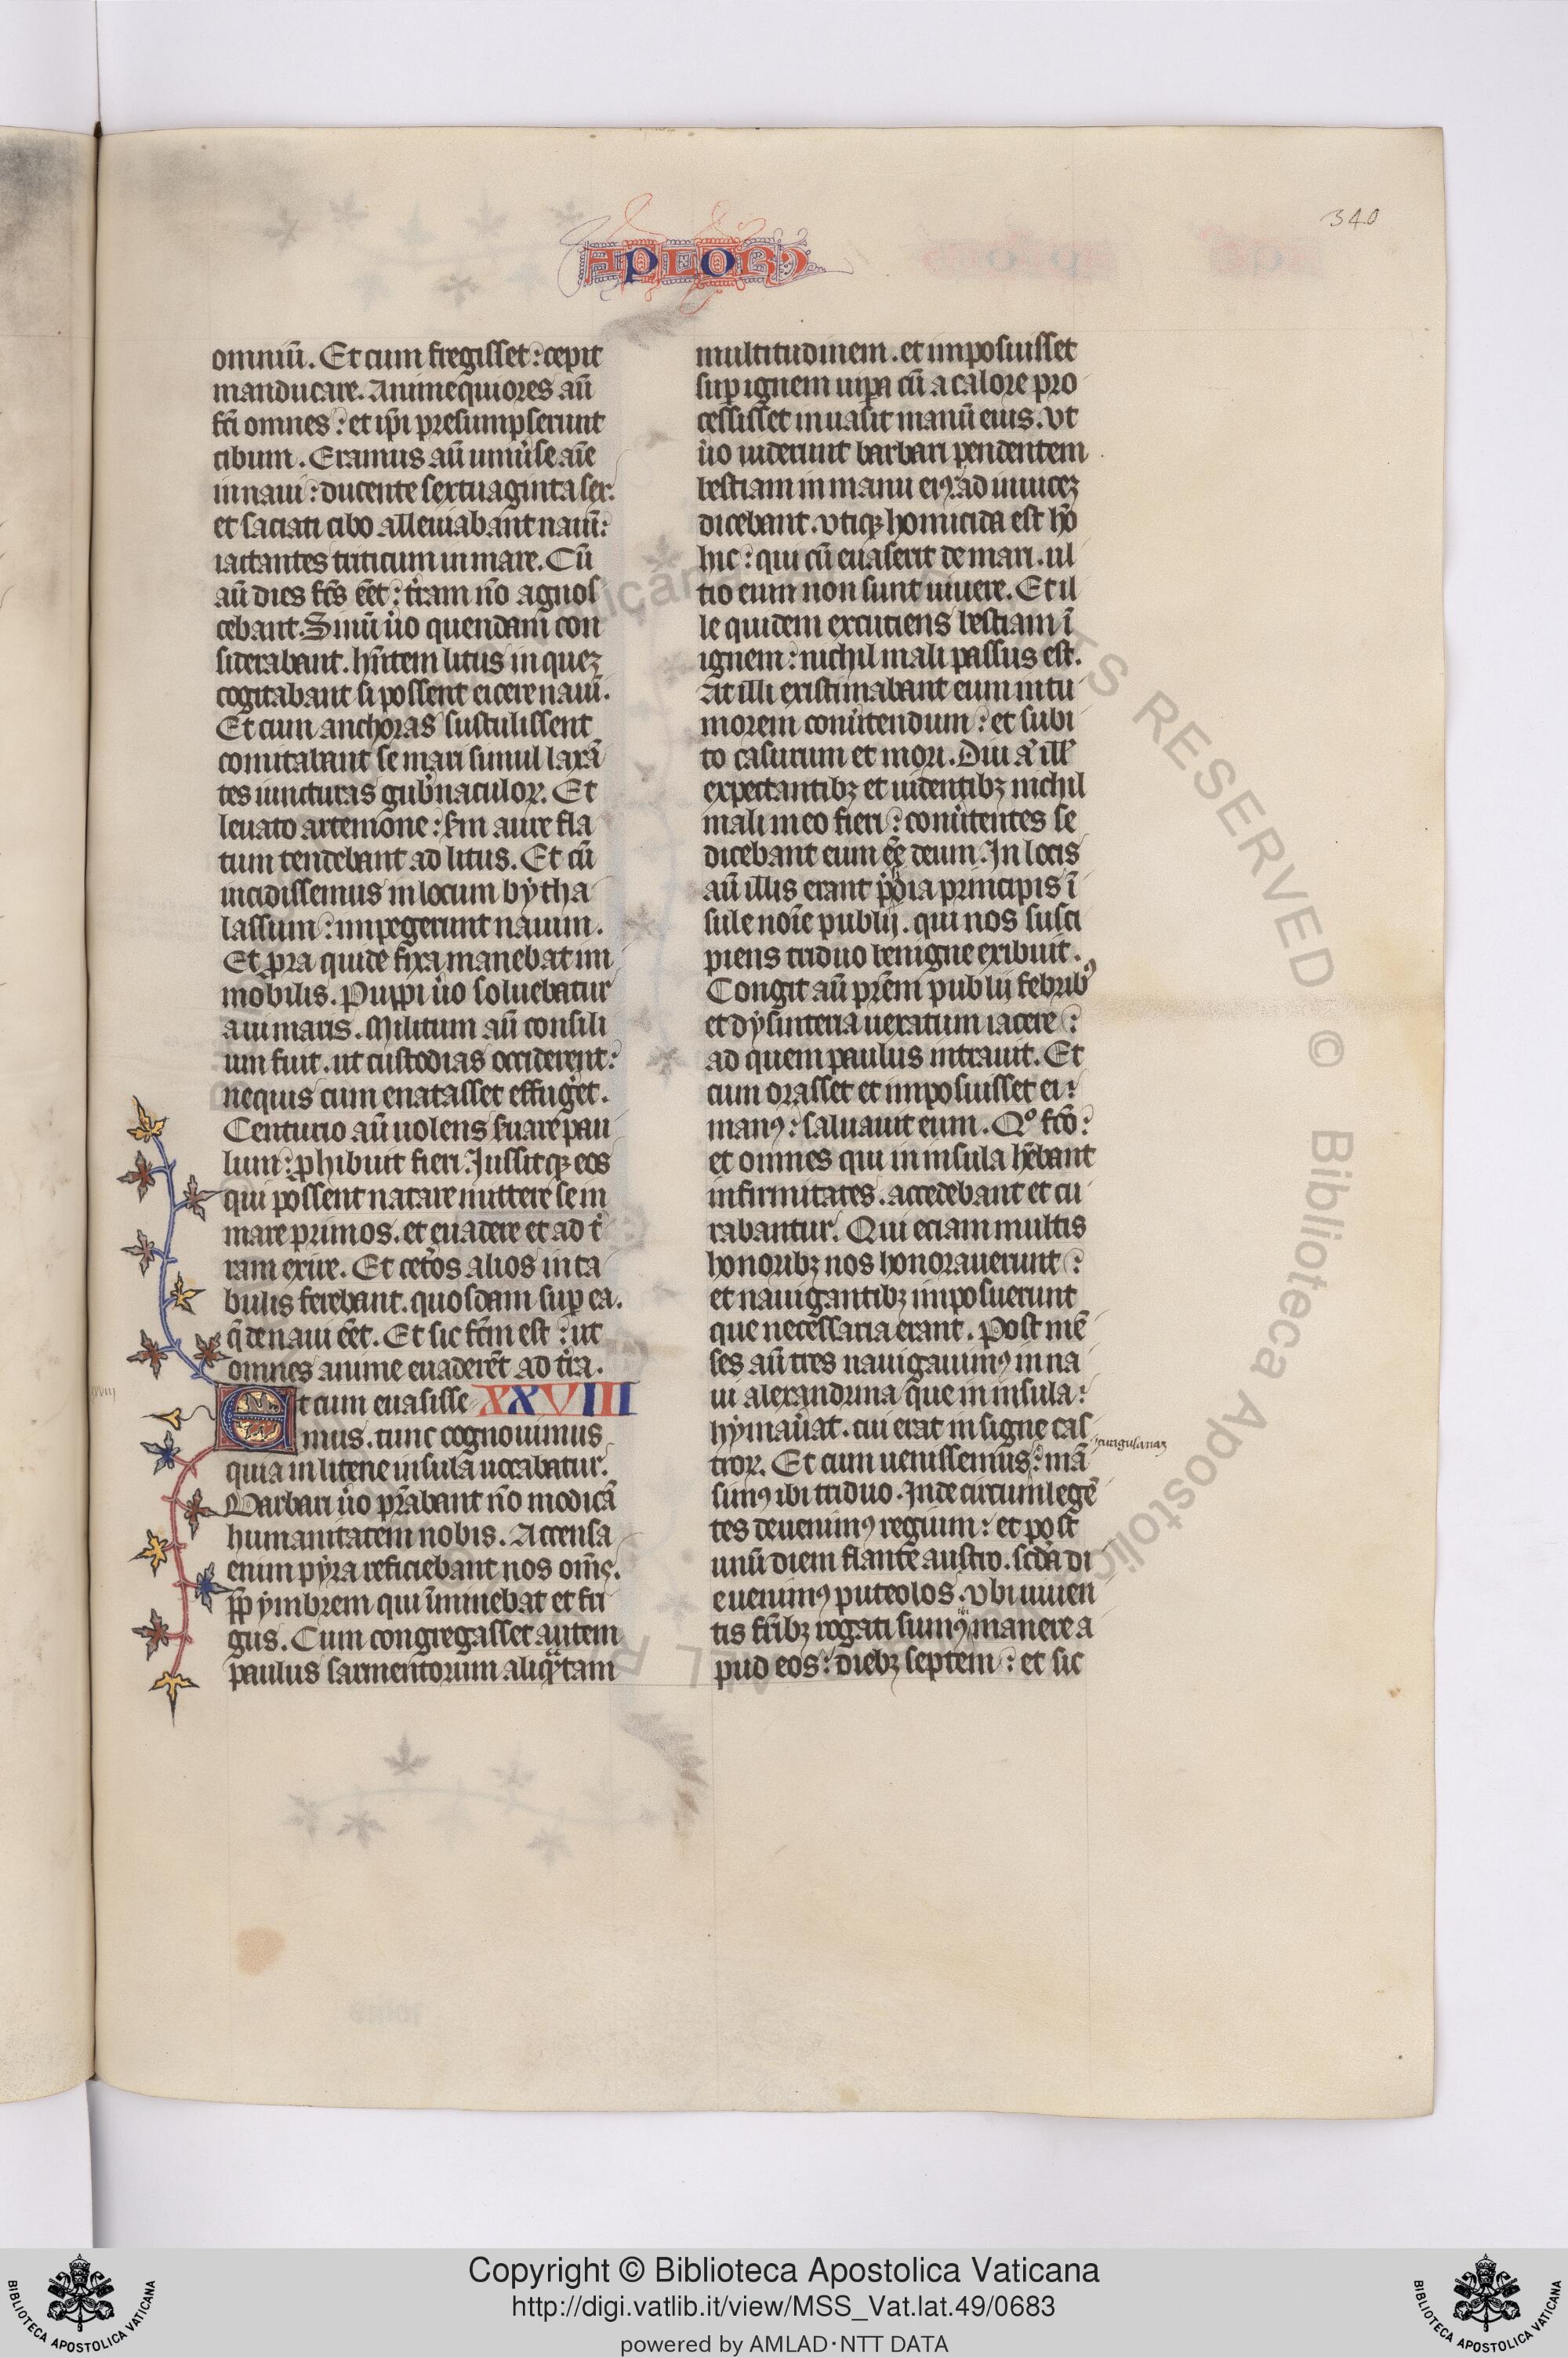 340
APLORꝜ
omniū. Et cum fregisset: cepit
manducare. Animequiores aū
fc̄i omnes: et ip̄i presumpserunt
cibum. Eramus aū uniūse aīe
in naui: ducente sextuaginta sex.
et saciati cibo alleuiabant nauē:
iactantes triticum in mare. Cū
aū dies fc̄s eēt: t̄ram nō agnos
cebant. Sinū ůo quendam con
siderabant. hn̄tem litus in queꝫ
cogitabant si possent eicere nauē.
Et cum anchoras sustulissent
comitabant se mari simul laxā
tes iuncturas gub̄naculoꝝ. Et
leuato artemone: s̄m aure fla
tum tendebant ad litus. Et cū
incidissemus in locum bẏtha
lassum: impegerunt nauim.
Et p̄ra quidē fixa manebat im
mobilis. Puppi ůo soluebatur
a ui maris. Militum aū consili
um fuit. ut custodias occiderent:
nequis cum enatasset effug̓et.
Centurio aū uolens s̓uare pau
lum: ꝓhibuit fieri. Jussitqꝫ eos
qui possent natare mittere se in
mare primos. et euadere et ad t̓
ram exire. Et cet̓os alios in ta
bulis ferebant. quosdam suꝑ ea.
q̄ de naui eēt. Et sic fc̄m est: ut
omnes anime euaderēt ad t̓rā.
xxviii
Et cum euasisse XXVIII
mus. tunc cognouimus
quia militene insula uocabatur.
Barbari ůo p̄rabant nō modicā
humanitatem nobis. Accensa
enim pẏra reficiebant nos om̄s.
ꝓp̄ ẏmbrem qui īminebat et fri
gus. Cum congregasset autem
paulus sarmentorum aliqᵃtam
multitudinem. et imposuisset
suꝑ ignem uiꝑa cū a calore pro
cessisset inuasit manū eius. Vt
ůo uiderunt barbari pendentem
bestiam in manu eiꝰ: ad inuiceꝫ
dicebant. Vtiqꝫ homicida est hō
hic: qui cū euaserit de mari. ul
tio eum non sunt uiuere. Et il
le quidem excutiens bestiam ī
ignem: nichil mali passus est.
At illi existimabant eum in tu
morem conůtendum: et subi
to casurum et mori. Diu aͥ ill̓
expectantibꝫ et uidentibꝫ nichil
mali in eo fieri: conůtentes se
dicebant eum eē deum. In locis
aū illis erant p̄dia principis ī
sule noīe publij. qui nos susci
piens triduo benigne exibuit.
Congit aū pr̄em publij febribꝰ
et dẏsinteria uexatum iacere:
ad quem paulus intrauit. Et
cum orasset et imposuisset ei:
manꝰ: saluauit eum. Qͦ fc̄o:
et omnes qui in insula hēbant
infirmitates. accedebant et cu
rabantur. Qui eciam multis
honoribꝫ nos honorauerunt:
et nauigantibꝫ imposuerunt
que necessaria erant. Post mē
ses aū tres nauigauimꝰ in na
ui alexandrina que in insula:
hẏmaůat. cui erat insigne cas
troꝝ. Et cum uenissemus: mā
simꝰ ibi triduo. Inde circumlegē
tes deuenimꝰ regium: et post
unū diem flante austro. scd̄a di
e uenimꝰ puteolos. Vbi inuen
tis fr̄ibꝫ rogati sumꝰ manere a
pud eos: diebꝫ septem: et sic
Copyright © Biblioteca Apostolica Vaticana
http://digi.vatlib.it/view/MSS_Vat.lat.49/0683
powered by AMLAD·NTT DATA
BIBLIOTECA APOSTOLICA VATICANA
BIBLIOTECA APOSTOLICA VATICANA